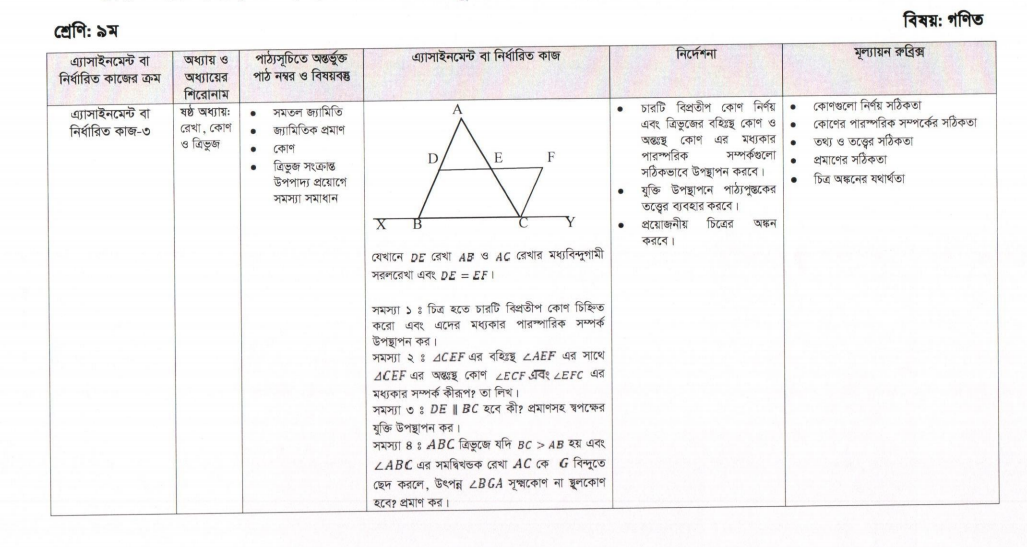 শ্রেণি: ৯ম
বিষয়: গণিত
এ্যাসাইনমেন্ট বা
নির্ধারিত কাজের ক্রম
অধ্যায় ও
অধ্যায়ের
শিরোনাম
পাঠ্যসূচিতে অন্তর্ভুক্ত
পাঠ নম্বর ও বিষয়বস্তু
এ্যাসাইনমেন্ট বা নির্ধারিত কাজ
নির্দেশনা
মূল্যায়ন রুব্রিক্স
এ্যাসাইনমেন্ট বা
নির্ধারিত কাজ-৩
ষষ্ঠ অধ্যায়:
রেখা, কোণ
ও ত্রিভুজ
• সমতল জ্যামিতি
• জ্যামিতিক প্রমাণ
• কোণ
• ত্রিভুজ সংক্রান্ত
উপপাদ্য প্রয়োগে
সমস্যা সমাধান
A
D E F
X B C Y
যেখানে DE রেখা AB ও AC রেখার মধ্যবিন্দুগামী
সরলরেখা এবং DE = EF।
সমস্যা ১ ঃ চিত্র হতে চারটি বিপ্রতীপ কোণ চিহ্নিত
করো এবং এদের মধ্যকার পারস্পারিক সম্পর্ক
উপস্থাপন কর।
সমস্যা ২ ঃ ΔCEF এর বহিঃস্থ ∠AEF এর সাথে
ΔCEF এর অন্তঃস্থ কোণ ∠ECF এবং ∠EFC এর
মধ্যকার সম্পর্ক কীরূপ? তা লিখ।
সমস্যা ৩ ঃ DE ∥ BC হবে কী? প্রমাণসহ স্বপক্ষের
যুক্তি উপস্থাপন কর।
সমস্যা ৪ ঃ ABC ত্রিভুজে যদি BC > AB হয় এবং
∠ABC এর সমদ্বিখন্ডক রেখা AC কে G বিন্দুতে
ছেদ করলে, উৎপন্ন ∠BGA সূক্ষ্মকোণ না স্থূলকোণ
হবে? প্রমাণ কর।
• চারটি বিপ্রতীপ কোণ নির্ণয়
এবং ত্রিভুজের বহিঃস্থ কোণ ও
অন্তঃস্থ কোণ এর মধ্যকার
পারস্পরিক সম্পর্কগুলো
সঠিকভাবে উপস্থাপন করবে।
• যুক্তি উপস্থাপনে পাঠ্যপুস্তকের
তত্ত্বের ব্যবহার করবে।
• প্রয়োজনীয় চিত্রের অঙ্কন
করবে।
• কোণগুলো নির্ণয় সঠিকতা
• কোণের পারস্পরিক সম্পর্কের সঠিকতা
• তথ্য ও তত্ত্বের সঠিকতা
• প্রমাণের সঠিকতা
• চিত্র অঙ্কনের যথার্থতা